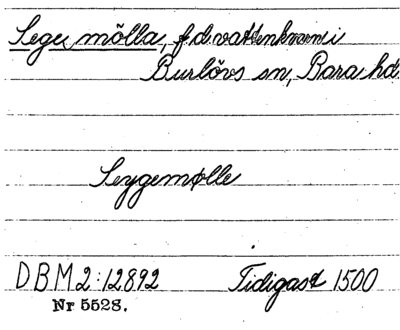 Sege mölla, f.d. vattenkvarn i
Burlövs sn, Bara hd.
Seygemølle
DBM 2:12892 Tidigast 1500
Nr 5528.